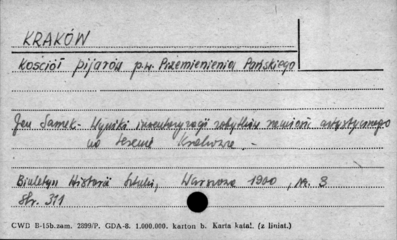 KRAKÓW
Kościół pijarów p.w. Przemienienia Pańskiego
Jan Samek - Wyniki inwentaryzacji zabytków rzemiosł artystycznego
na terenie Krakowa. -
Biuletyn Historii Sztuki, Warszawa 1960, Nr. 3
Str. 311
CWD B-15b. zam. 2899/P. GDA-8. 1.000.000. karton b. Karta katal. (z liniat.)